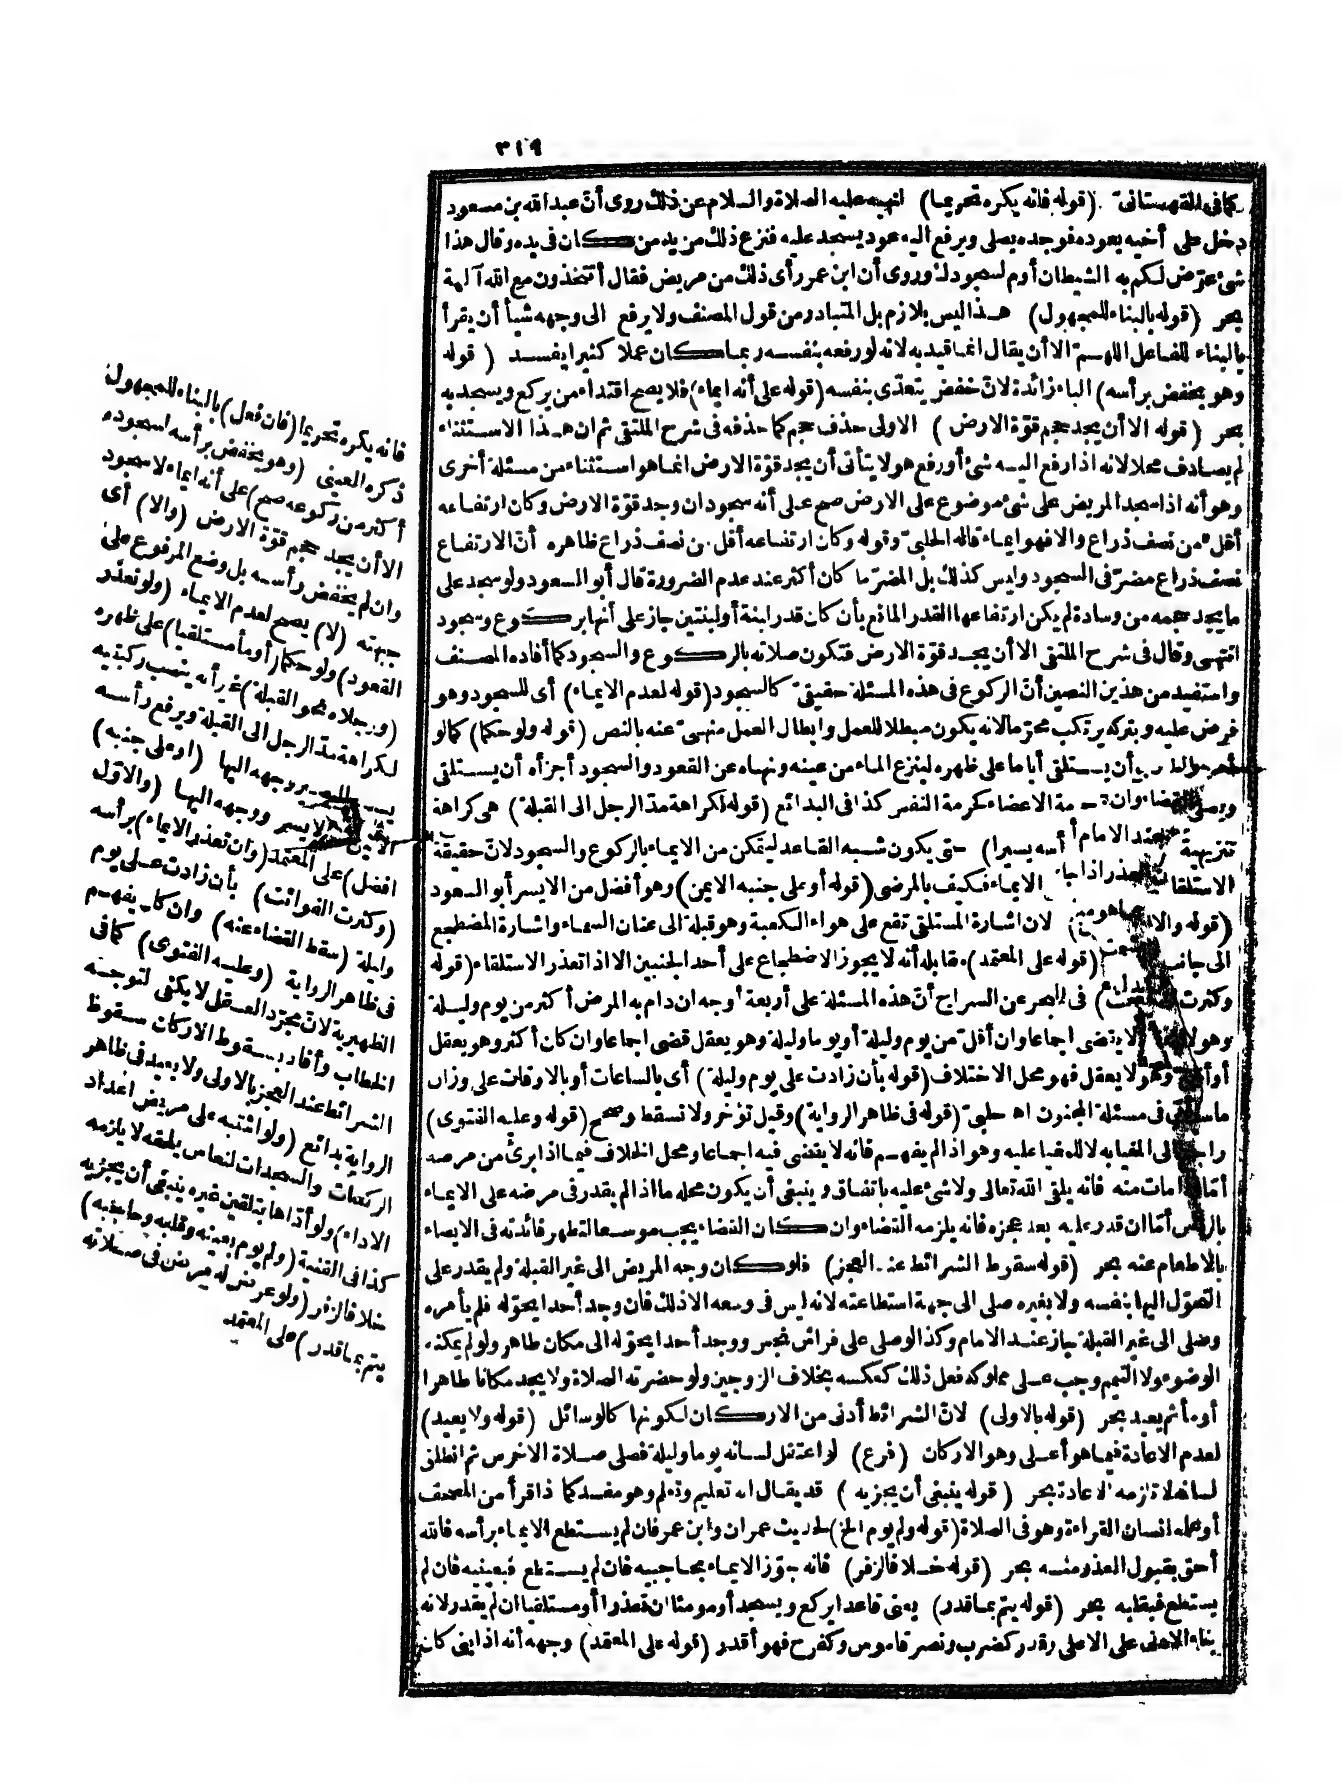 ٣١٩
كما فى القهستانى (قوله فانه يكره تحريما) لنهيه عليه الصلاة والسلام عن ذلك روى أن عبد الله بن مسعود
دخل على أخيه يعوده فوجده يصلى ويرفع اليه عود يسجد عليه فنزع ذلك من يد من كان فى يده وقال هذا
شئ عرّض لكم به الشيطان أوم لسجودك وروى أن ابن عمر رأى ذلك من مريض فقال أتتخذون مع الله آلهة
بحر (قوله بالبناء للمجهول) هذا ليس بلازم بل المتبادر من قول المصنف ولا يرفع الى وجهه شيأ أن يقرأ
بالبناء للفاعل اللهم الا أن يقال انما قيد به لانه لو رفعه بنفسه ربما كان عملا كثيرا يفسد (قوله
وهو يخفض برأسه) الباء زائدة لان خفض يتعدّى بنفسه (قوله على أنه ايماء) فلا يصح اقتداء من يركع ويسجد به
بحر (قوله الا أن يجد حجم قوّة الارض) الاولى حذف حجم كما حذفه فى شرح الملتقى ثم ان هذا الاستثناء
لم يصادف محلا لانه اذا رفع اليه شئ أو رفع هو لا يتأتى أن يجد قوّة الارض انما هو استثناء من مسئلة أخرى
وهو أنه اذا سجد المريض على شئ موضوع على الارض صح على أنه سجود ان وجد قوّة الارض وكان ارتفاعه
أقل من نصف ذراع والا فهو ايماء قاله الحلبى وقوله وكان ارتفاعه أقل من نصف ذراع ظاهره أن الارتفاع
نصف ذراع مضرّ فى السجود وليس كذلك بل المضرّ ما كان أكثر عند عدم الضرورة قال أبو السعود ولو سجد على
ما يجد حجمه من وسادة لم يكن ارتفاعها القدر المانع بأن كان قدر لبنة أو لبنتين جاز على أنها بركوع وسجود
انتهى وقال فى شرح الملتقى الا أن يجد قوّة الارض فتكون صلاته بالركوع والسجود كما أفاده المصنف
واستفيد من هذين النصين أن الركوع فى هذه المسئلة حقيقى كالسجود (قوله لعدم الايماء) أى للسجود وهو
فرض عليه وبتركه يرتكب محرّما لانه يكون مبطلا للعمل وابطال العمل منهى عنه بالنص (قوله ولو حكما) كما لو
أمره الطبيب أن يستلقى أياما على ظهره لينزع الماء من عينه ونهاه عن القعود والسجود أجزأه أن يستلقى
ويصلى لان حرمة الاعضاء كحرمة النفس كذا فى البدائع (قوله لكراهة مدّ الرجل الى القبلة) هى كراهة
تنزيهية رأسه يسيرا) حتى يكون شبه القاعد ليتمكن من الايماء بالركوع والسجود لان حقيقة
الاستلقاء الايماء فكيف بالمرضى (قوله أو على جنبه الايمن) وهو أفضل من الايسر أبو السعود
(قوله والاوّل لان اشارة المستلقى تقع على هواء الكعبة وهو قبلة الى عنان السماء واشارة المضطجع
الى جانب (قوله على المعتمد) مقابله أنه لا يجوز الاضطجاع على أحد الجنبين الا اذا تعذر الاستلقاء (قوله
وكثرت فى البحر عن السراج أن هذه المسئلة على أربعة أوجه ان دام به المرض أكثر من يوم وليلة
وهو لا يعقل لا يقضى اجماعا وان أقل من يوم وليلة أو يوما وليلة وهو يعقل قضى اجماعا وان كان أكثر وهو يعقل
أو أقل وهو لا يعقل فهو محل الاختلاف (قوله بأن زادت على يوم وليلة) أى بالساعات أو بالاوقات على وزان
ما سيأتى فى مسئلة المجنون اه حلبى (قوله فى ظاهر الرواية) وقيل تؤخر ولا تسقط وصحح (قوله وعليه الفتوى)
راجع الى المغيا به لا للمغيا عليه وهو اذا لم يفهم فانه لا يقضى فيه اجماعا ومحل الخلاف فيما اذا برئ من مرضه
أمّا اذا مات منه فانه يلقى الله تعالى ولا شئ عليه باتفاق وينبغى أن يكون محله ما اذا لم يقدر فى مرضه على الايماء
بالرأس أمّا ان قدر عليه بعد عجزه فانه يلزمه القضاء وان كان القضاء يجب موسعا لتظهر فائدته فى الايصاء
بالاطعام عنه بحر (قوله سقوط الشرائط عند العجز) فلو كان وجه المريض الى غير القبلة ولم يقدر على
التحوّل اليها بنفسه ولا بغيره صلى الى جهة استطاعته لانه ليس فى وسعه الا ذلك فان وجد أحدا يحوّله فلم يأمره
وصلى الى غير القبلة جاز عند الامام وكذا لو صلى على فراش نجس ووجد أحدا يحوّله الى مكان طاهر ولو لم يمكنه
الوضوء ولا التيمم وجب على مملوكه فعل ذلك كعكسه بخلاف الزوجين ولو حضرته الصلاة ولا يجد مكانا طاهرا
يعيد بحر (قوله بالاولى) لان الشرائط أدنى من الاركان لكونها كالوسائل (قوله ولا يعيد)
لعدم الاعادة فيما هو أعلى وهو الاركان (فرع) لو اعتقل لسانه يوما وليلة فصلى صلاة الاخرس ثم انطلق
لسانه لا تلزمه الاعادة بحر (قوله ينبغى أن يجزيه) قد يقال انه تعليم وتعلم وهو مفسد كما اذا قرأ من المصحف
أو علمه انسان القراءة وهو فى الصلاة (قوله ولم يوم الخ) لحديث عمران وابن عمر فان لم يستطع الايماء برأسه فالله
أحق بقبول العذر منه بحر (قوله خلافا لزفر) فانه جوّز الايماء بحاجبيه فان لم يستطع فبعينيه فان لم
يستطع فبقلبه بحر (قوله يتم بما قدر) يعنى قاعدا يركع ويسجد أو مومئا ان تعذرا أو مستلقيا ان لم يقدر لانه
بناء الادنى على الاعلى وقدر كضرب ونصر قاموس وكفرح فهو أقدر (قوله على المعتمد) وجهه أنه اذا بنى كان
فانه يكره تحريما (فان فعل) بالبناء للمجهول
ذكره العينى (وهو يخفض برأسه لسجوده
أكثر من ركوعه صح) على أنه ايماء لا سجود
الا أن يجد حجم قوّة الارض (والا) أى
وان لم يخفض رأسه بل وضع المرفوع على
جبهته (لا) يصح لعدم الايماء (ولو تعذر
القعود) ولو حكما (أومأ مستلقيا) على ظهره
(ورجلاه نحو القبلة) غير أنه ينصب ركبتيه
لكراهة مدّ الرجل الى القبلة ويرفع رأسه
يسيرا ليصير وجهه اليها (أو على جنبه)
الايمن أو الايسر ووجهه اليها (والاوّل
افضل) على المعتمد (وان تعذر الايماء) برأسه
(وكثرت الفوائت) بأن زادت على يوم
وليلة (سقط القضاء عنه) وان كان يفهم
فى ظاهر الرواية (وعليه الفتوى) كما فى
الظهيرية لان مجرّد العقل لا يكفى لتوجه
الخطاب وأفاد بسقوط الاركان سقوط
الشرائط عند العجز بالاولى ولا يعيد فى ظاهر
الرواية بدائع (ولو اشتبه على مريض اعداد
الركعات والسجدات لنعاس يلحقه لا يلزمه
الاداء) ولو أدّاها بتلقين غيره ينبغى أن يجزيه
كذا فى القنية (ولم يوم بعينه وقلبه وحاجبه)
خلافا لزفر (ولو عرض له مرض فى صلاته
يتم بما قدر) على المعتمد